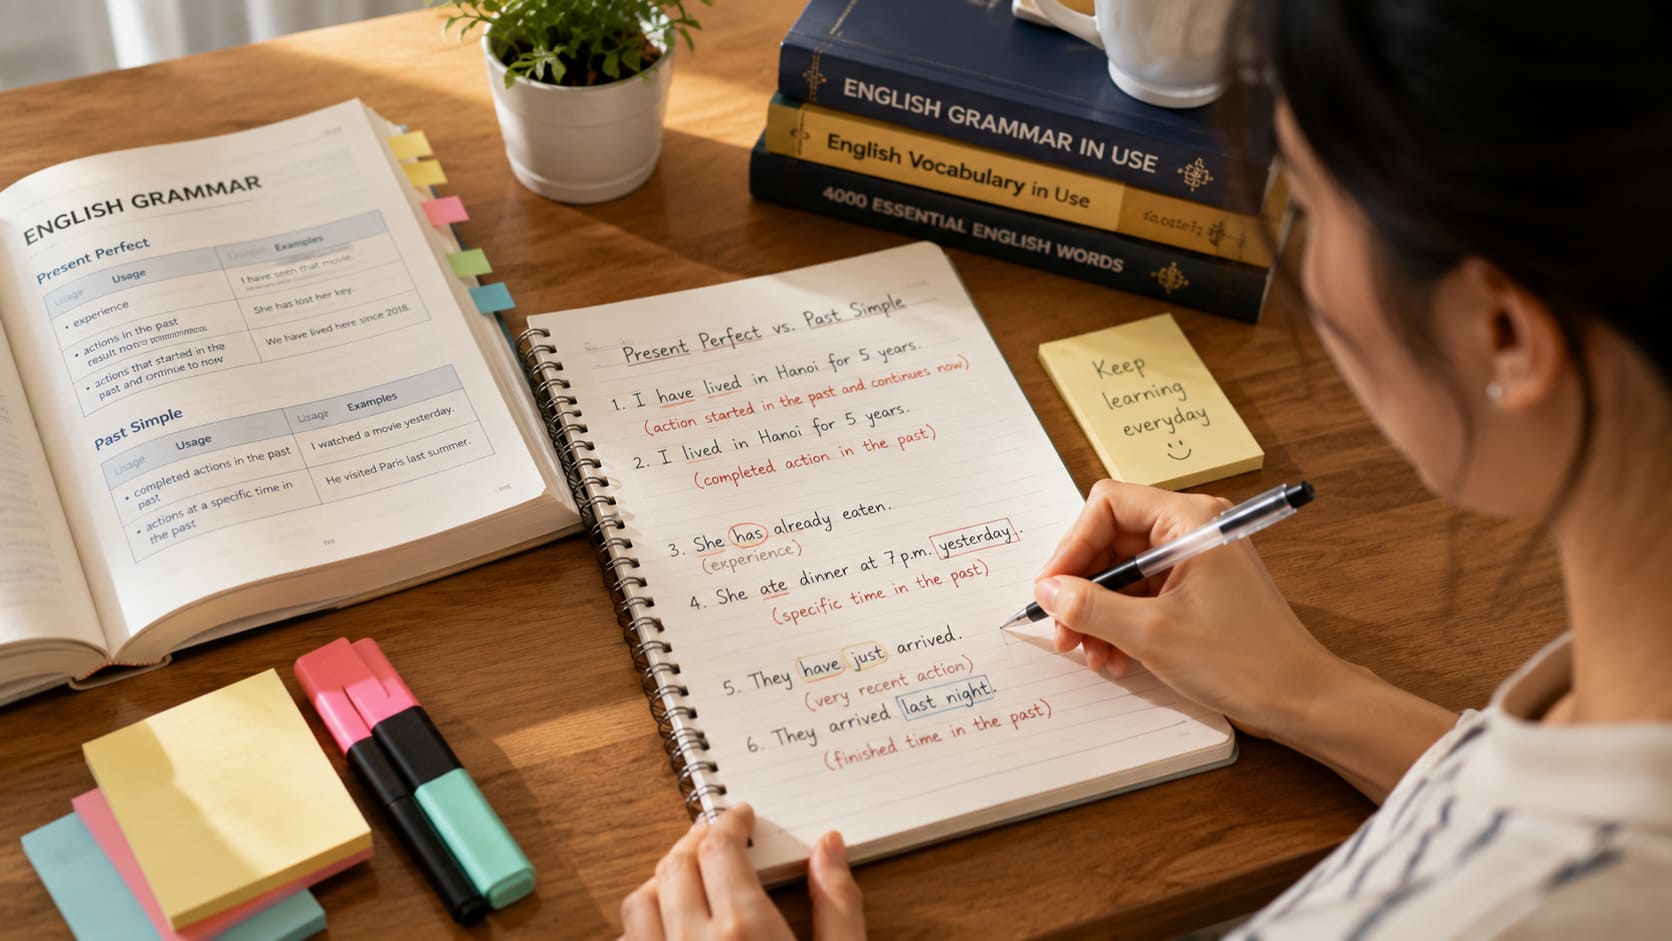 ENGLISH GRAMMAR
Present Perfect
Usage Usage Examples
• experience
I have seen that movie.
• actions in the past
result
She has lost her key.
• actions that started in the
past and continue to now
We have lived here since 2018.
Past Simple
Usage Usage Usage Examples
• completed actions in the past
past
I watched a movie yesterday.
• actions at a specific time in
the past
He visited Paris last summer.
Present Perfect vs. Past Simple
1. I have lived in Hanoi for 5 years.
(action started in the past and continues now)
2. I lived in Hanoi for 5 years.
(completed action in the past)
3. She has already eaten.
(experience)
4. She ate dinner at 7 p.m. yesterday.
(specific time in the past)
5. They have just arrived.
(very recent action)
6. They arrived last night.
(finished time in the past)
ENGLISH GRAMMAR IN USE
English Vocabulary in Use
4000 ESSENTIAL ENGLISH WORDS
Keep
learning
everyday